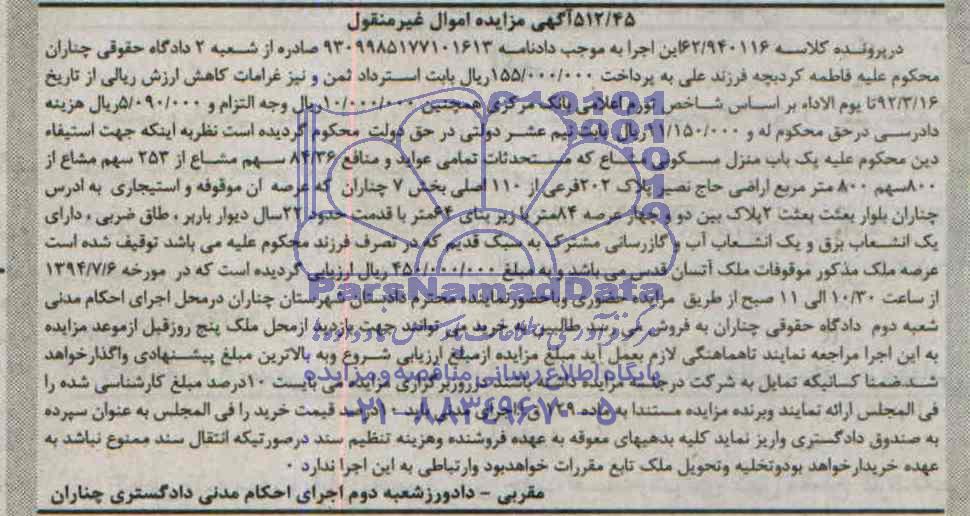 ۵۱۲/۴۵آگهی مزایده اموال غیرمنقول
درپرونده کلاسه ۶۲/۹۴۰۱۱۶این اجرا به موجب دادنامه ۹۳۰۹۹۸۵۱۷۷۱۰۱۶۱۳ صادره از شعبه ۲ دادگاه حقوقی چناران
محکوم علیه فاطمه کردبچه فرزند علی به پرداخت ۱۵۵/۰۰۰/۰۰۰ریال بابت استرداد ثمن و نیز غرامات کاهش ارزش ریالی از تاریخ
۹۲/۳/۱۶تا یوم الاداء بر اساس شاخص تورم اعلامی بانک مرکزی همچنین ۱۰/۰۰۰/۰۰۰ریال وجه التزام و ۵/۰۹۰/۰۰۰ریال هزینه
دادرسی درحق محکوم له و ۹۱/۱۵۰/۰۰۰ریال بابت نیم عشر دولتی در حق دولت محکوم گردیده است نظربه اینکه جهت استیفاء
دین محکوم علیه یک باب منزل مسکونی مشاع که مستحدثات تمامی عواید و منافع ۸۴/۳۶ سهم مشاع از ۲۵۳ سهم مشاع از
۸۰۰سهم ۸۰۰ متر مربع اراضی حاج نصیر پلاک ۲۰۲فرعی از ۱۱۰ اصلی بخش ۷ چناران که عرصه آن موقوفه و استیجاری به ادرس
چناران بلوار بعثت بعثت ۲پلاک بین دو و چهار عرصه ۸۴متر با زیر بنای ۶۴متر با قدمت حدود ۲۲سال دیوار باربر ، طاق ضربی ، دارای
یک انشعاب برق و یک انشعاب آب و گازرسانی مشترک به سبک قدیم که در تصرف فرزند محکوم علیه می باشد توقیف شده است
عرصه ملک مذکور موقوفات ملک آتسان قدس می باشد و به مبلغ ۴۵۰/۰۰۰/۰۰۰ ریال ارزیابی گردیده است که در مورخه ۱۳۹۴/۷/۶
از ساعت ۱۰/۳۰ الی ۱۱ صبح از طریق مزایده حضوری وباحضورنماینده محترم دادستان شهرستان چناران درمحل اجرای احکام مدنی
شعبه دوم دادگاه حقوقی چناران به فروش می رسد طالبین به خرید می توانند جهت بازدید ازمحل ملک پنج روزقبل ازموعد مزایده
به این اجرا مراجعه نمایند تاهماهنگی لازم بعمل آید مبلغ مزایده ازمبلغ ارزیابی شروع وبه بالاترین مبلغ پیشنهادی واگذارخواهد
شد.ضمنا کسانیکه تمایل به شرکت درجلسه مزایده داشته باشند درروزبرگزاری مزایده می بایست ۱۰درصد مبلغ کارشناسی شده را
فی المجلس ارائه نمایند وبرنده مزایده مستندا به ماده ۱۲۹ ق اجرای مدنی باید ۱۰درصد قیمت خرید را فی المجلس به عنوان سپرده
به صندوق دادگستری واریز نماید کلیه بدهیهای معوقه به عهده فروشنده وهزینه تنظیم سند درصورتیکه انتقال سند ممنوع نباشد به
عهده خریدارخواهد بودوتخلیه وتحویل ملک تابع مقررات خواهدبود وارتباطی به این اجرا ندارد .
مقربی - دادورزشعبه دوم اجرای احکام مدنی دادگستری چناران
ParsNamadData
پایگاه اطلاع رسانی مناقصه و مزایده
۰۲۱-۸۸۳۴۹۶۷۰-۵